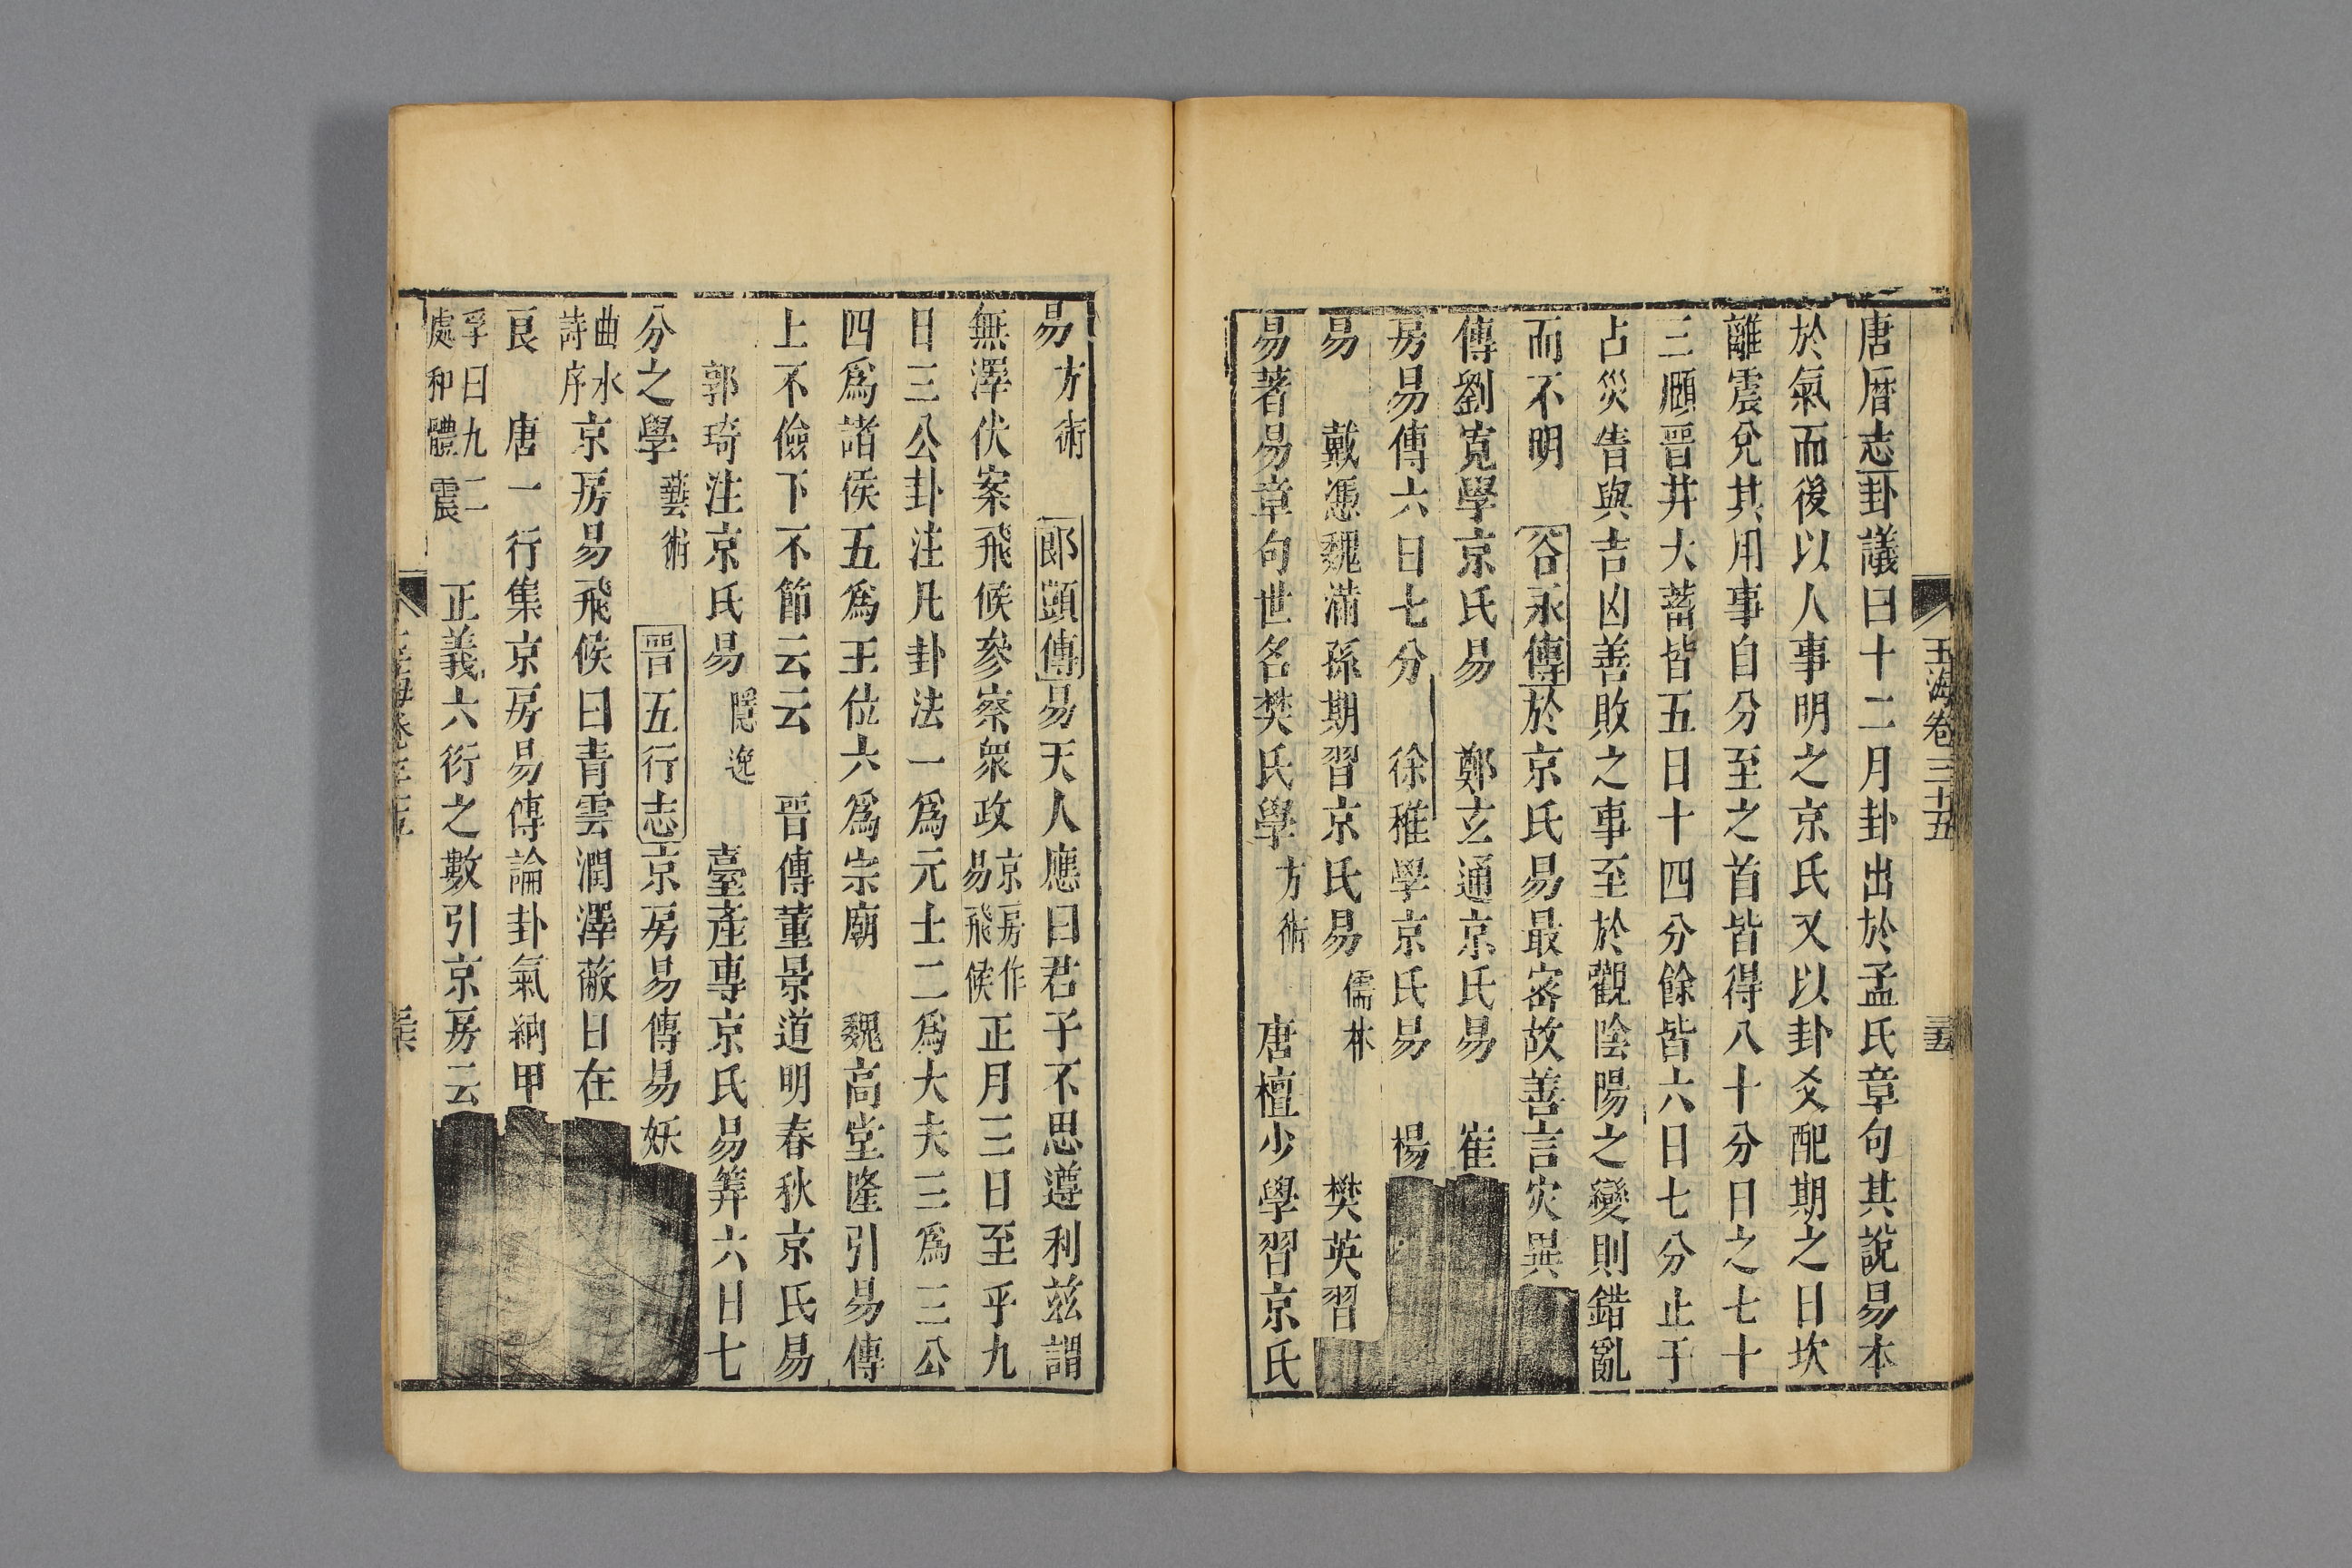 玉海卷三十五
唐曆志卦議曰十二月卦出於孟氏章句其說易本
於氣而後以人事明之京氏又以卦爻配期之日坎
離震兌其用事自分至之首皆得八十分日之七十
三頤晉井大畜皆五日十四分餘皆六日七分止于
占災眚與吉凶善敗之事至於觀陰陽之變則錯亂
而不明　谷永傳於京氏易最密故善言灾異
傳劉寬學京氏易　鄭玄通京氏易　崔
房易傳六日七分　徐稚學京氏易　楊
易　戴憑魏滿孫期習京氏易儒林　樊英習
易著易章句世名樊氏學方術　唐檀少學習京氏
易方術　郎顗傳易天人應曰君子不思遵利茲謂
無澤伏案飛候參察衆政京房作易飛候正月三日至乎九
日三公卦注凡卦法一爲元士二爲大夫三爲三公
四爲諸侯五爲王位六爲宗廟　魏高堂隆引易傳
上不儉下不節云云　晉傳董景道明春秋京氏易
郭琦注京氏易隱逸　臺產專京氏易筭六日七
分之學藝術　晉五行志京房易傳易妖
曲水詩序京房易飛候曰青雲潤澤蔽日在
艮　唐一行集京房易傳論卦氣納甲
孚曰九二處和體震　正義六衍之數引京房云